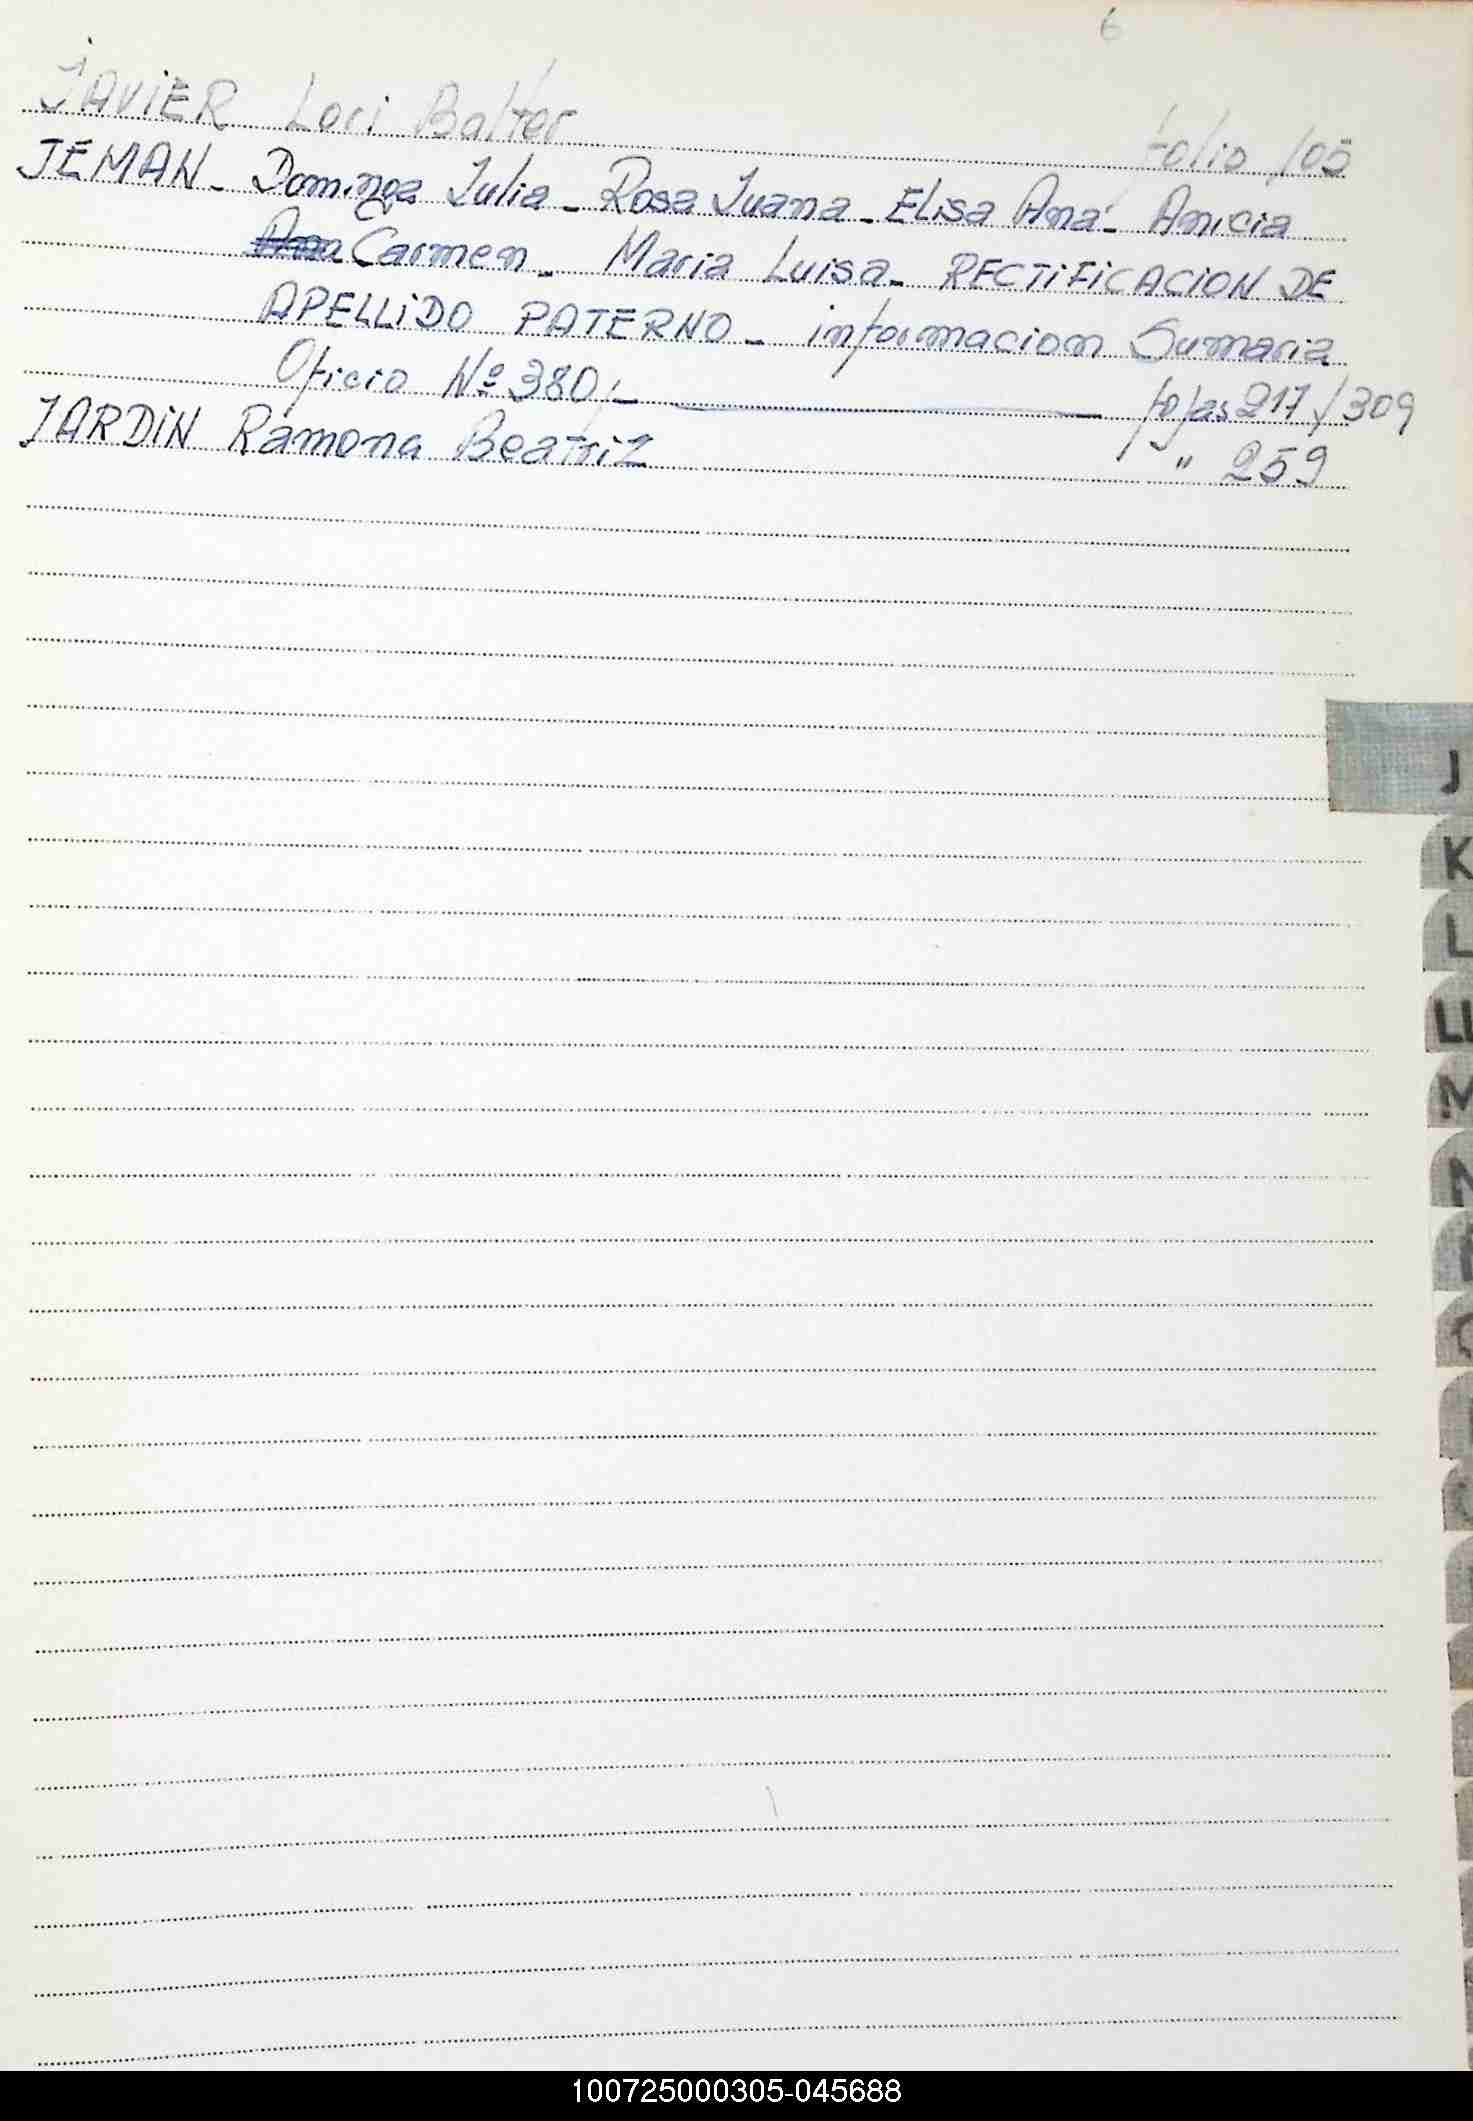 6
JAVIER Lori Balter folio 105
JEMAN - Dominga Julia - Rosa Juana - Elisa Ana - Anicia
Carmen - Maria Luisa - RECTIFICACION DE
APELLIDO PATERNO - informacion Sumaria
Oficio Nº 380/- fojas 217/309
JARDIN Ramona Beatriz " 259
J
K
L
LL
M
N
100725000305-045688